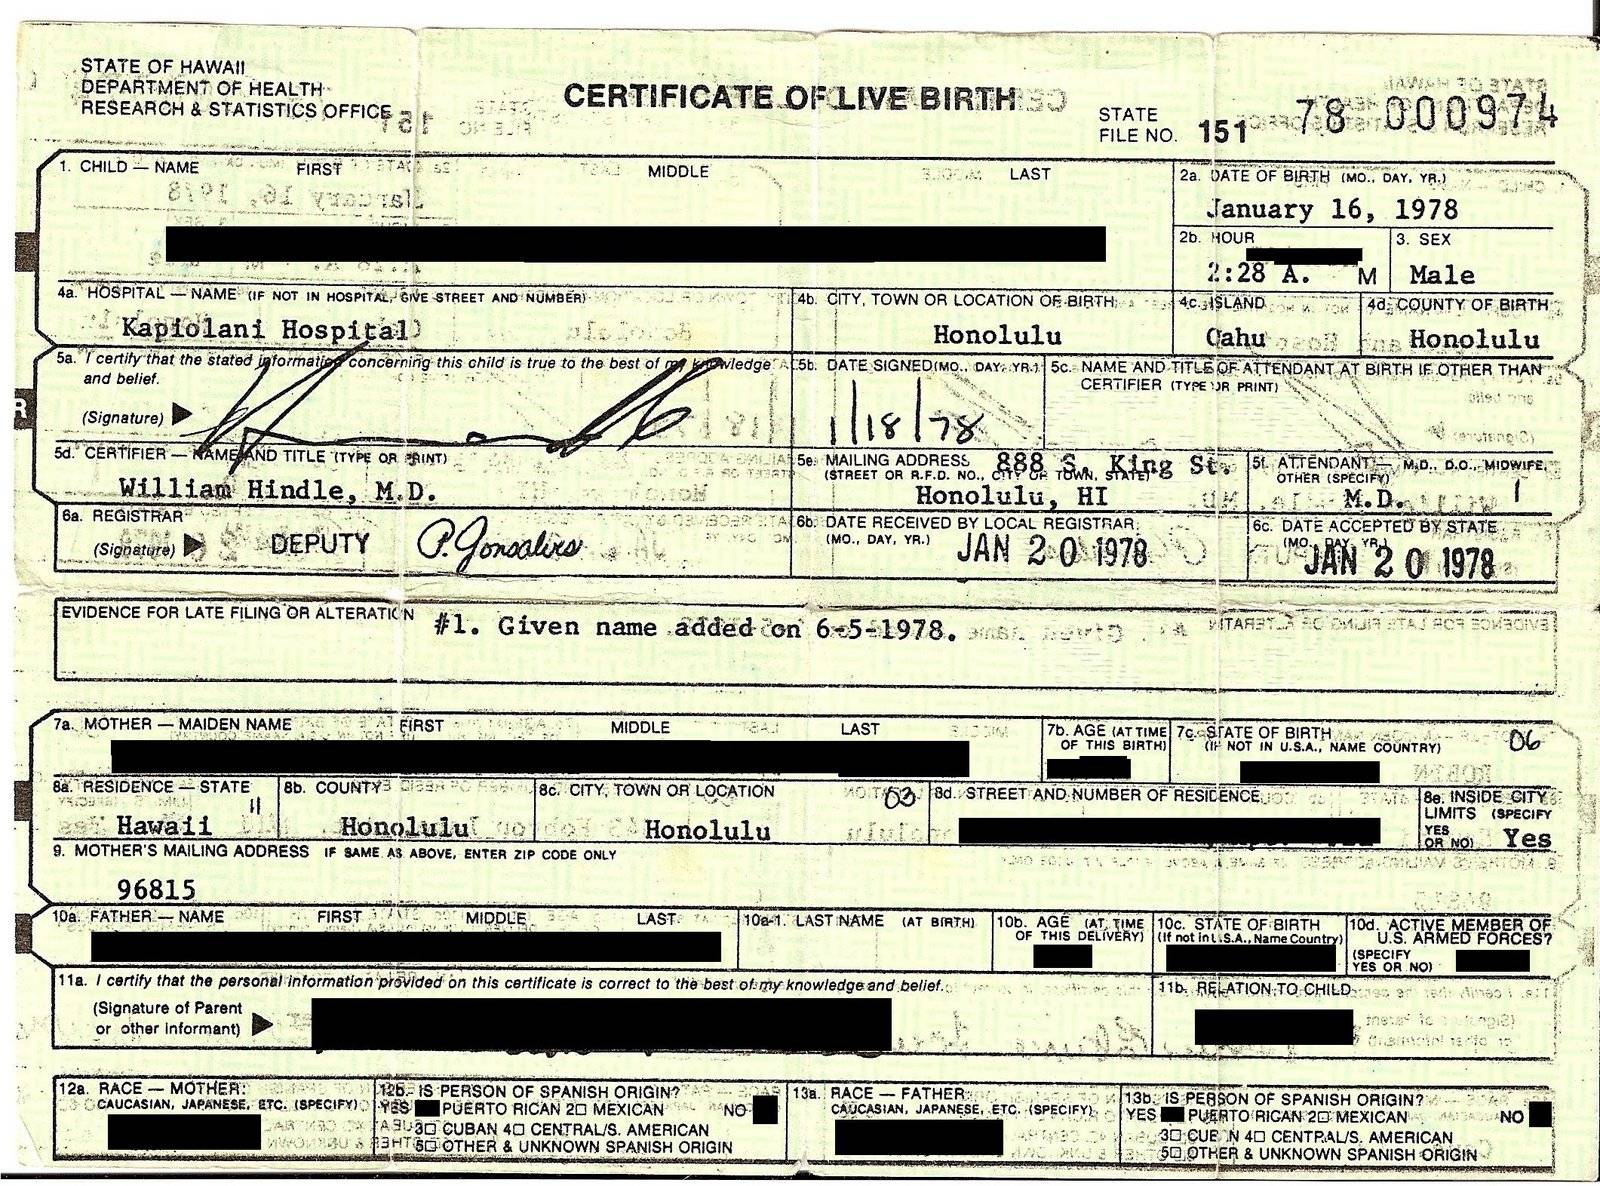 STATE OF HAWAII
DEPARTMENT OF HEALTH
RESEARCH & STATISTICS OFFICE
CERTIFICATE OF LIVE BIRTH
STATE FILE NO. 151 78 000974
1. CHILD — NAME FIRST MIDDLE LAST
2a. DATE OF BIRTH (MO., DAY, YR.)
January 16, 1978
2b. HOUR
2:28 A. M
3. SEX
Male
4a. HOSPITAL — NAME (IF NOT IN HOSPITAL, GIVE STREET AND NUMBER)
Kapiolani Hospital
4b. CITY, TOWN OR LOCATION OF BIRTH
Honolulu
4c. ISLAND
Oahu
4d. COUNTY OF BIRTH
Honolulu
5a. I certify that the stated information concerning this child is true to the best of my knowledge
and belief.
(Signature)
5b. DATE SIGNED (MO., DAY, YR.)
1/18/78
5c. NAME AND TITLE OF ATTENDANT AT BIRTH IF OTHER THAN
CERTIFIER (TYPE OR PRINT)
5d. CERTIFIER — NAME AND TITLE (TYPE OR PRINT)
William Hindle, M.D.
5e. MAILING ADDRESS 888 S. King St.
(STREET OR R.F.D. NO., CITY OR TOWN, STATE)
Honolulu, HI
5f. ATTENDANT — M.D., D.O., MIDWIFE,
OTHER (SPECIFY)
M.D. 1
6a. REGISTRAR
(Signature) DEPUTY P. Gonsalves
6b. DATE RECEIVED BY LOCAL REGISTRAR
(MO., DAY, YR.) JAN 20 1978
6c. DATE ACCEPTED BY STATE
(MO., DAY, YR.)
JAN 20 1978
EVIDENCE FOR LATE FILING OR ALTERATION
#1. Given name added on 6-5-1978.
7a. MOTHER — MAIDEN NAME FIRST MIDDLE LAST
7b. AGE (AT TIME
OF THIS BIRTH)
7c. STATE OF BIRTH
(IF NOT IN U.S.A., NAME COUNTRY) 06
8a. RESIDENCE — STATE
11
Hawaii
8b. COUNTY
Honolulu
8c. CITY, TOWN OR LOCATION 03
Honolulu
8d. STREET AND NUMBER OF RESIDENCE
8e. INSIDE CITY
LIMITS (SPECIFY
YES
OR NO) Yes
9. MOTHER'S MAILING ADDRESS IF SAME AS ABOVE, ENTER ZIP CODE ONLY
96815
10a. FATHER — NAME FIRST MIDDLE LAST
10a-1. LAST NAME (AT BIRTH)
10b. AGE (AT TIME
OF THIS DELIVERY)
10c. STATE OF BIRTH
(If not in U.S.A., Name Country)
10d. ACTIVE MEMBER OF
U.S. ARMED FORCES?
(SPECIFY
YES OR NO)
11a. I certify that the personal information provided on this certificate is correct to the best of my knowledge and belief.
(Signature of Parent
or other informant)
11b. RELATION TO CHILD
12a. RACE — MOTHER:
CAUCASIAN, JAPANESE, ETC. (SPECIFY)
12b. IS PERSON OF SPANISH ORIGIN?
YES PUERTO RICAN 2☐ MEXICAN NO
3☐ CUBAN 4☐ CENTRAL/S. AMERICAN
5☐ OTHER & UNKNOWN SPANISH ORIGIN
13a. RACE — FATHER
CAUCASIAN, JAPANESE, ETC. (SPECIFY)
13b. IS PERSON OF SPANISH ORIGIN?
YES PUERTO RICAN 2☐ MEXICAN NO
3☐ CUBAN 4☐ CENTRAL/S. AMERICAN
5☐ OTHER & UNKNOWN SPANISH ORIGIN